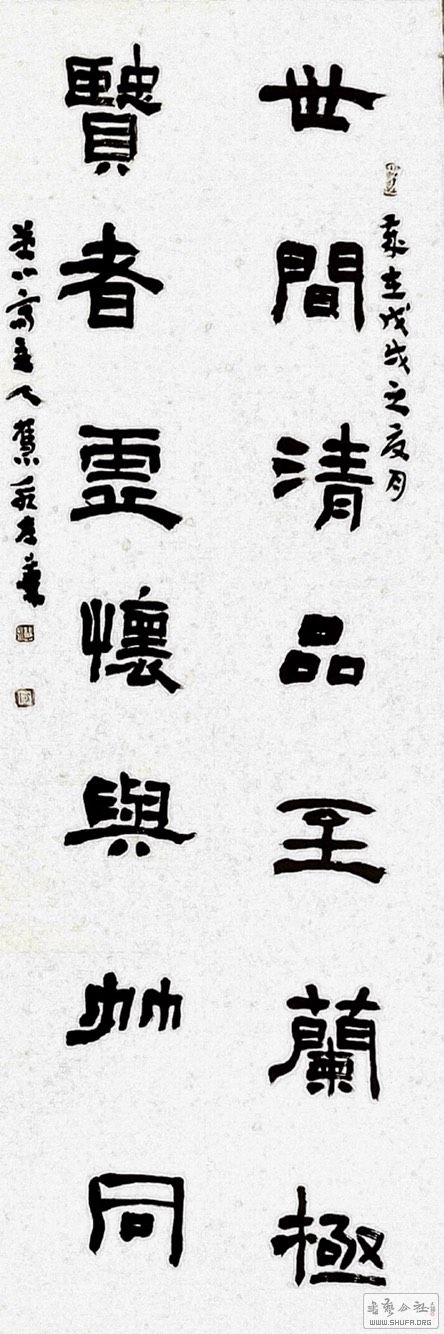 歲在戊戌之夏月
世間清品至蘭極
贒者霊懷與竹同
主人
書藝公社
WWW.SHUFA.ORG